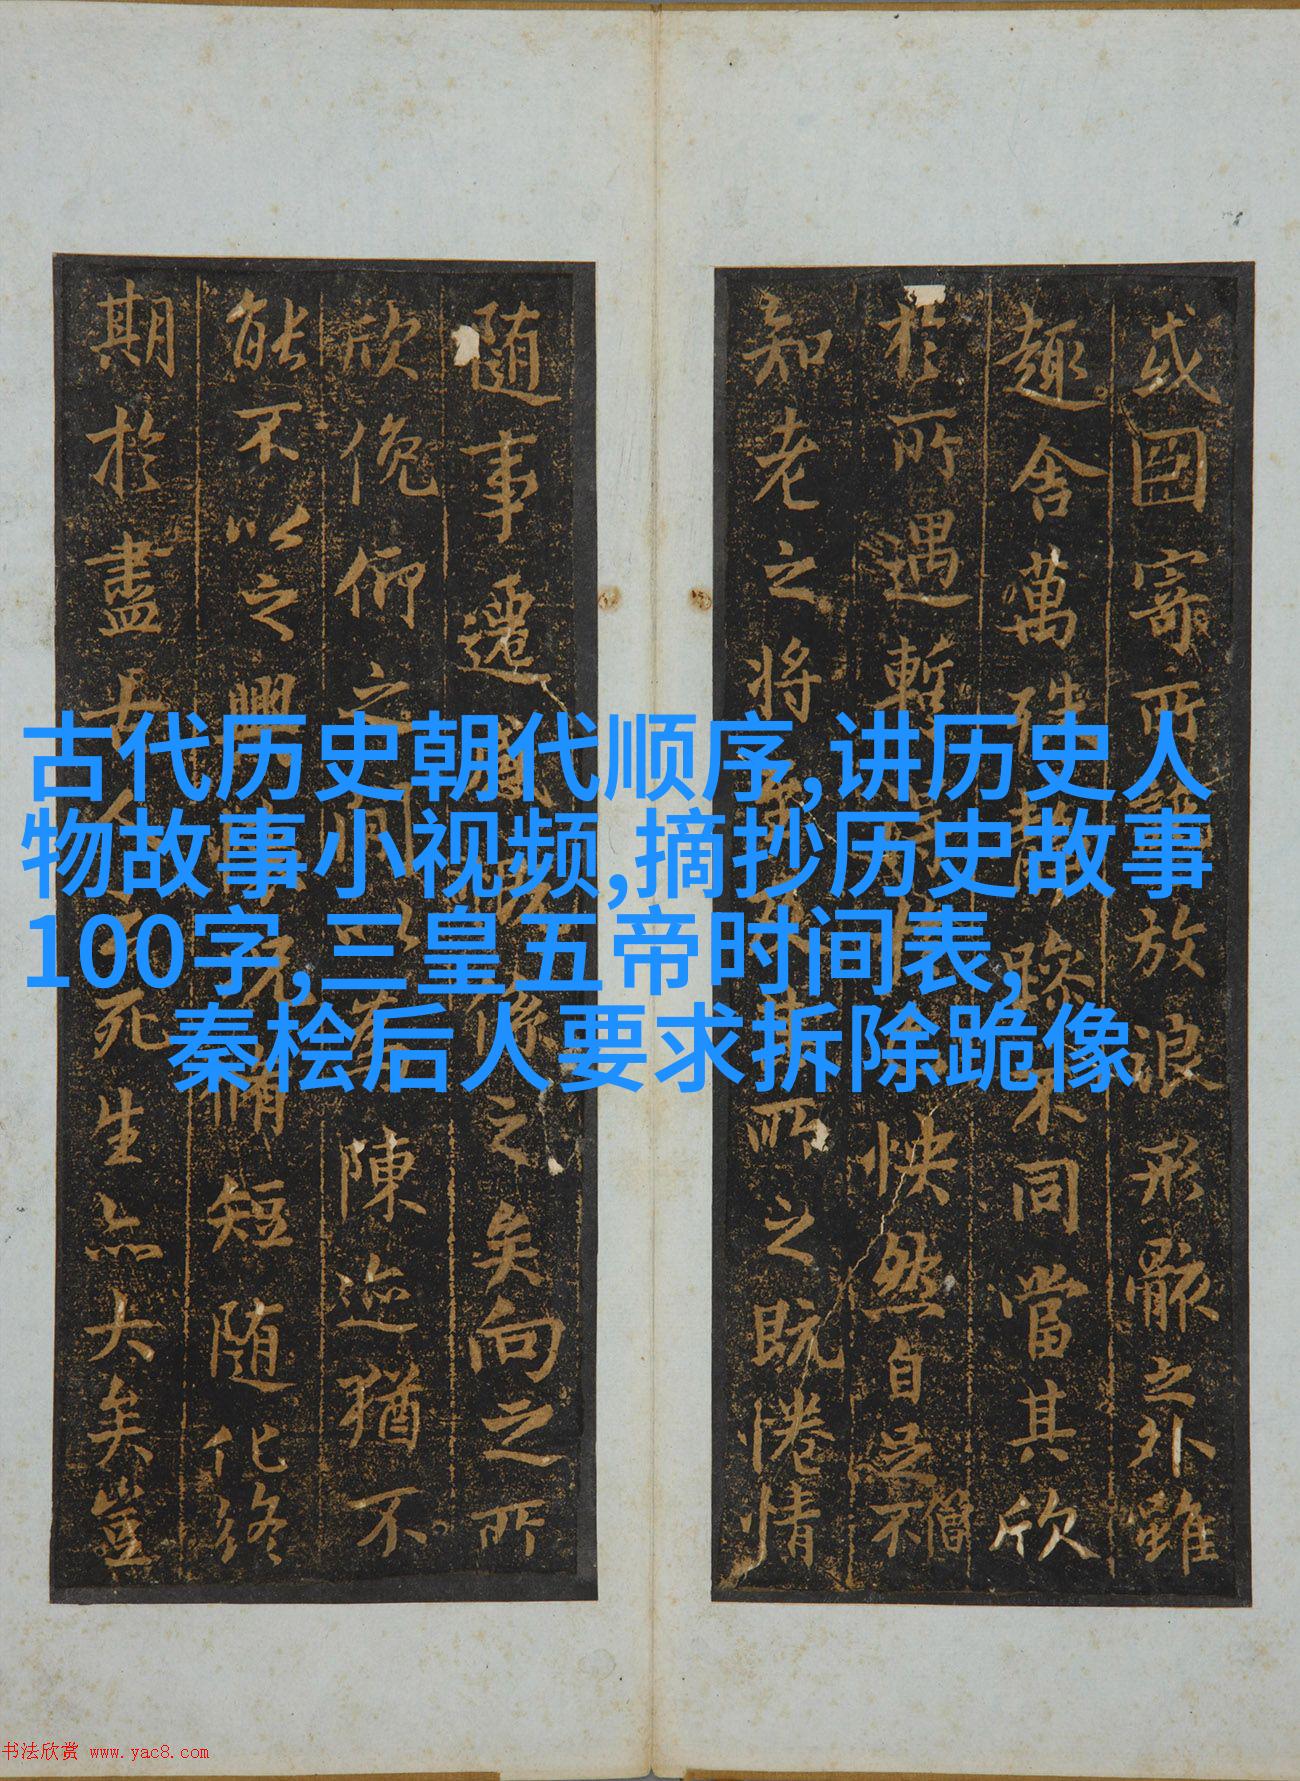 或因寄所託放浪形骸之外雖
趣舍萬殊静躁不同當其欣
於所遇暫得於己怏然自足不
僧
知老之將至及其所之既惓情
隨事遷感慨係之矣向之所
欣俛仰之間以為陳迹猶不
能不以之興懷況脩短隨化終
期於盡古人云死生亦大矣豈
古代历史朝代顺序,讲历史人
物故事小视频,摘抄历史故事
100字,三皇五帝时间表,
秦桧后人要求拆除跪像
书法欣赏 www.yac8.com